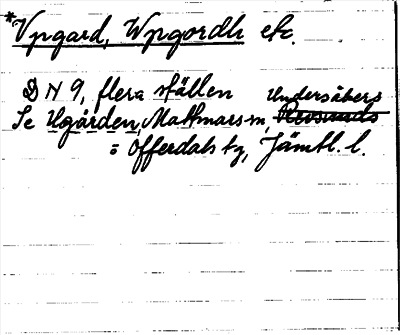 *Vpgard, Wpgordh etc.
DN 9, flera ställen Undersåkers
Se Ugården, Mattmars sn,
= Offerdals tg, Jämtl. l.